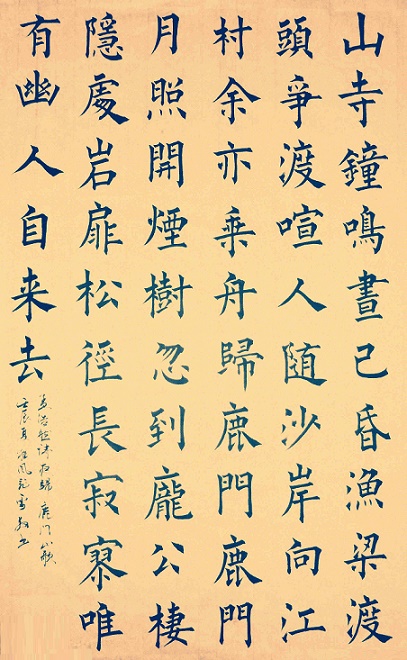 山寺鐘鳴晝已昏漁梁渡
頭爭渡喧人随沙岸向江
村余亦乗舟歸鹿門鹿門
月照開煙樹忽到龐公棲
隱處岩扉松徑長寂寥唯
有幽人自来去
孟浩然詩夜歸鹿门山歌